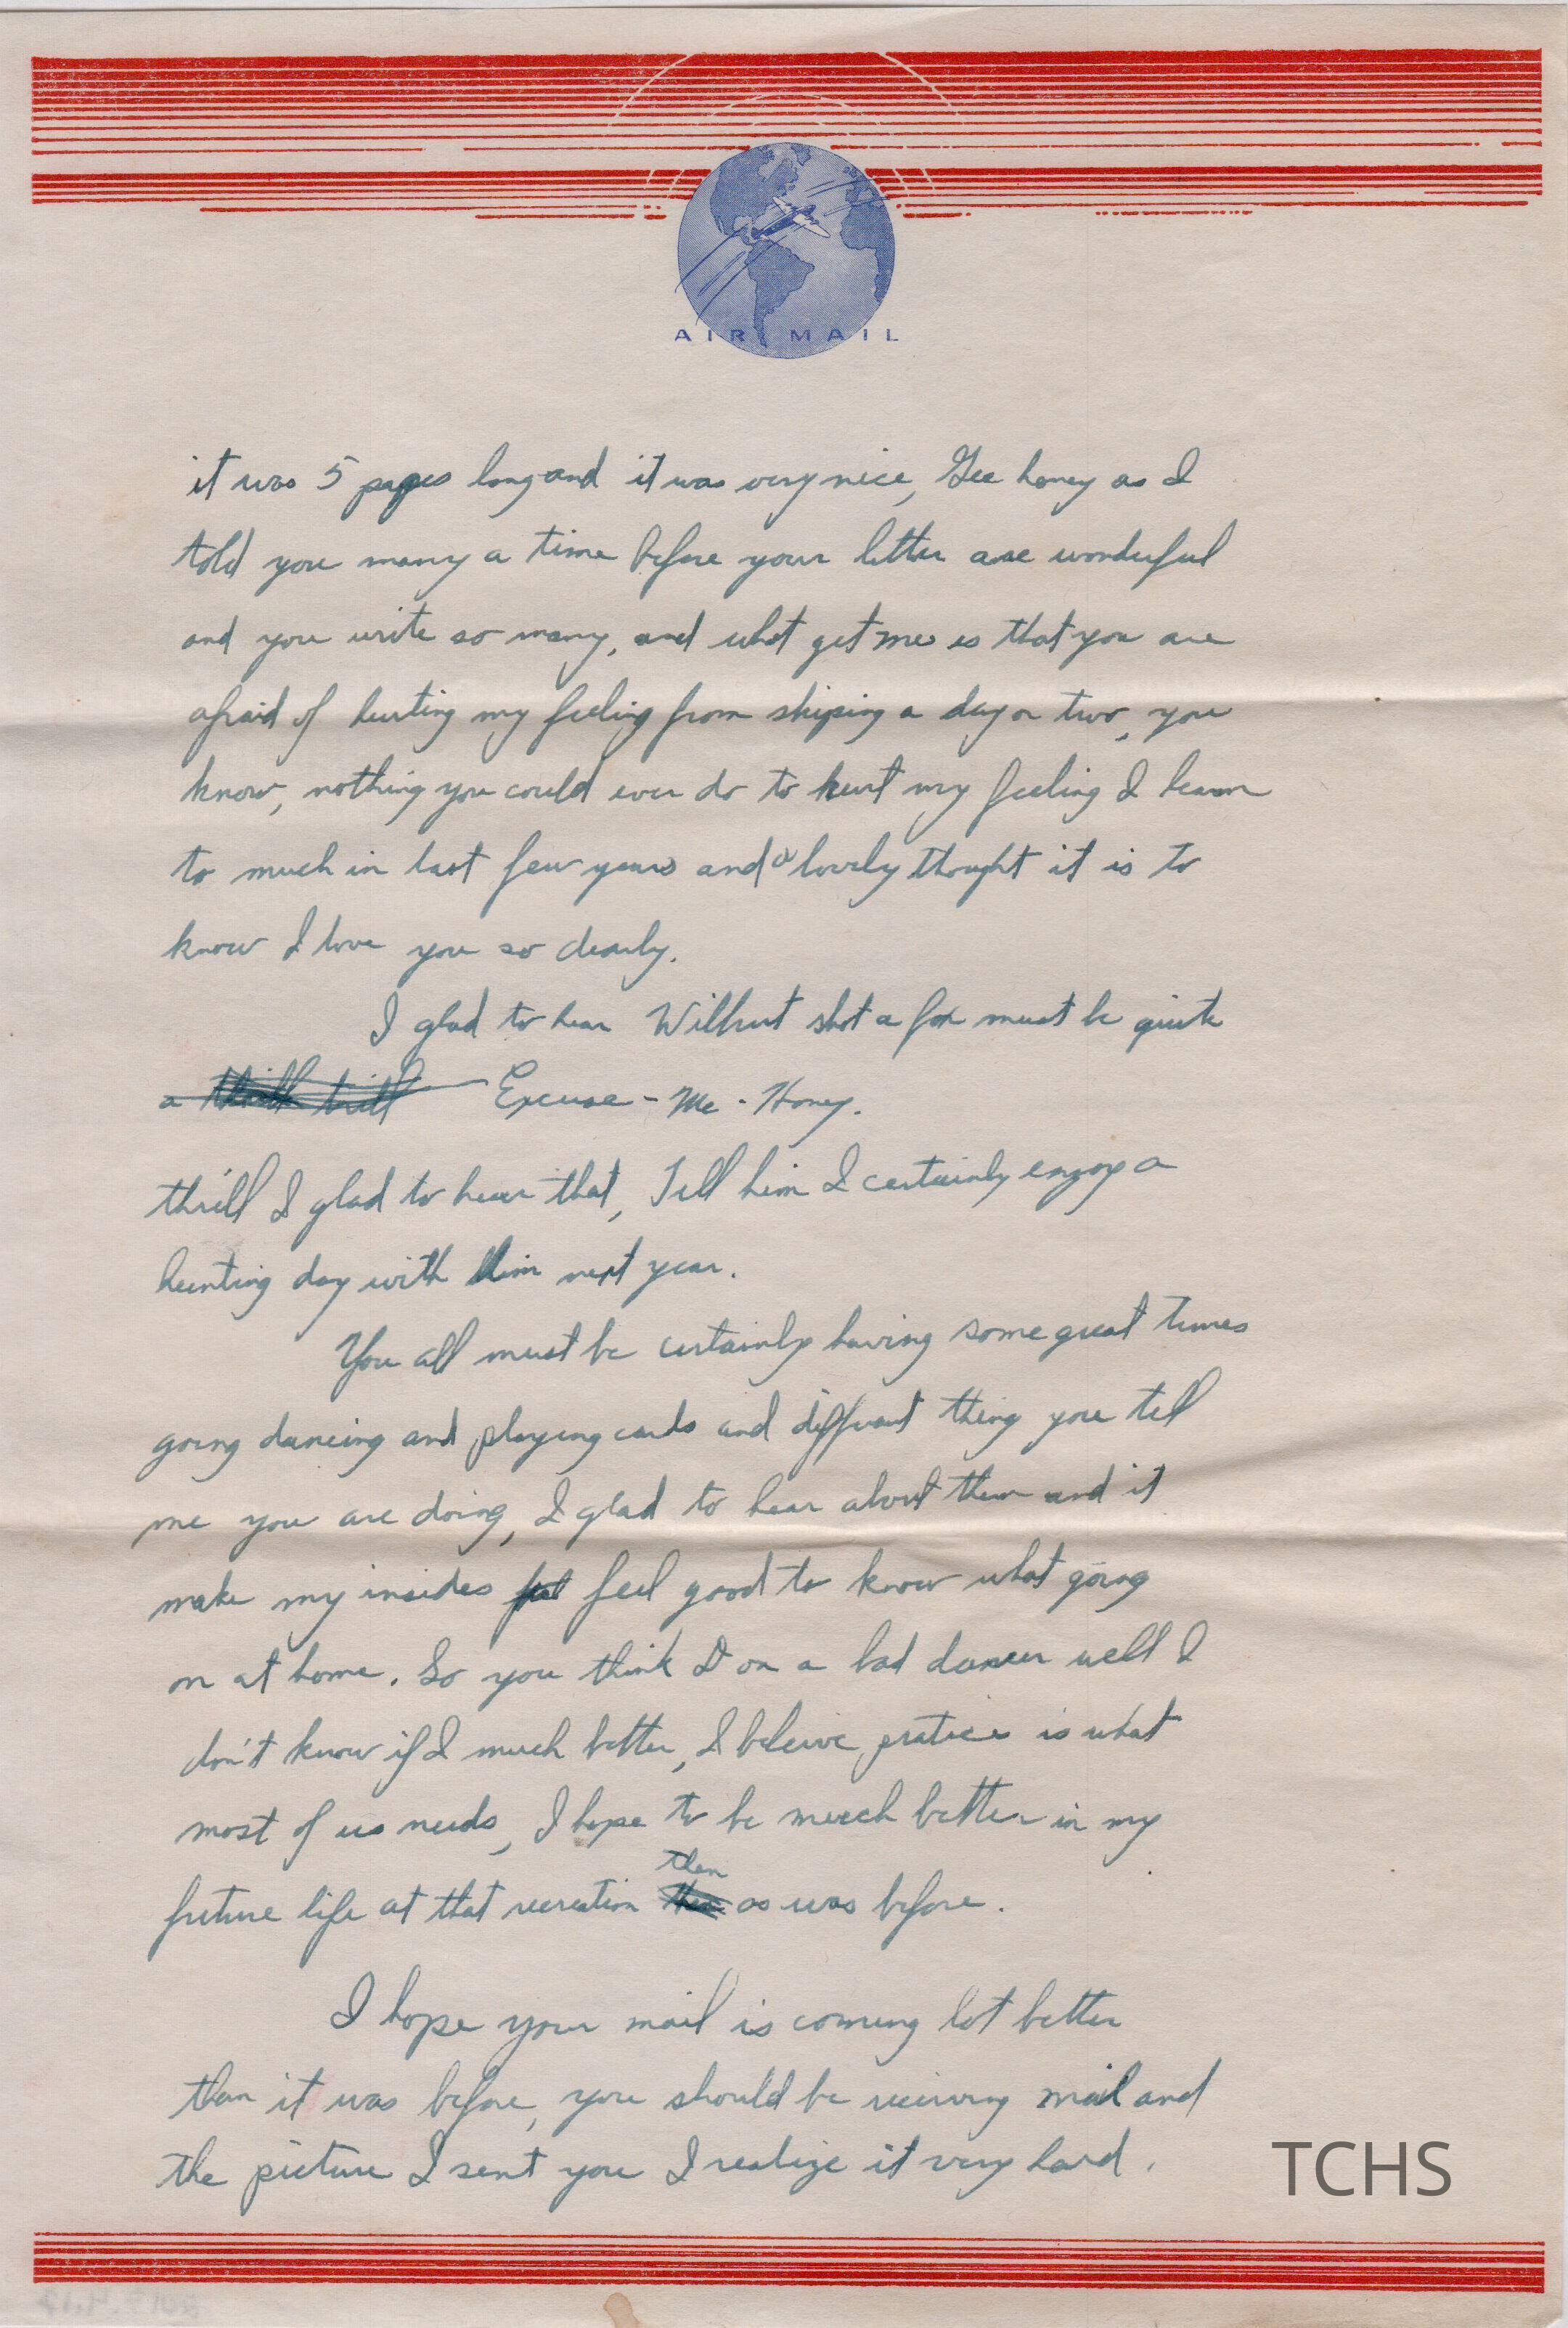 AIR MAIL
it was 5 pages long and it was very nice, Gee honey as I
told you many a time before your letter are wonderful
and you write so many, and what get me is that you are
afraid of hurting my feeling from skiping a day or two, you
know, nothing you could ever do to hurt my feeling I learn
to much in last few years and a lovely thought it is to
know I love you so dearly.
I glad to hear Wilburt shot a fox must be quite
a thrill trill Excuse - Me - Honey.
thrill I glad to hear that, Tell him I certainly enjoy a
hunting day with him next year.
You all must be certainly having some great times
going dancing and playing cards and diffrant thing you tell
me you are doing, I glad to hear about them and it
make my insides feel good to know what going
on at home. So you think I on a bad dancer well I
don't know if I much better, I beleive pratice is what
most of us needs, I hope to be much better in my
than
future life at that recreation as was before.
I hope your mail is coming lot better
than it was before, you should be reciving mail and
the picture I sent you I realize it very hard.
TCHS